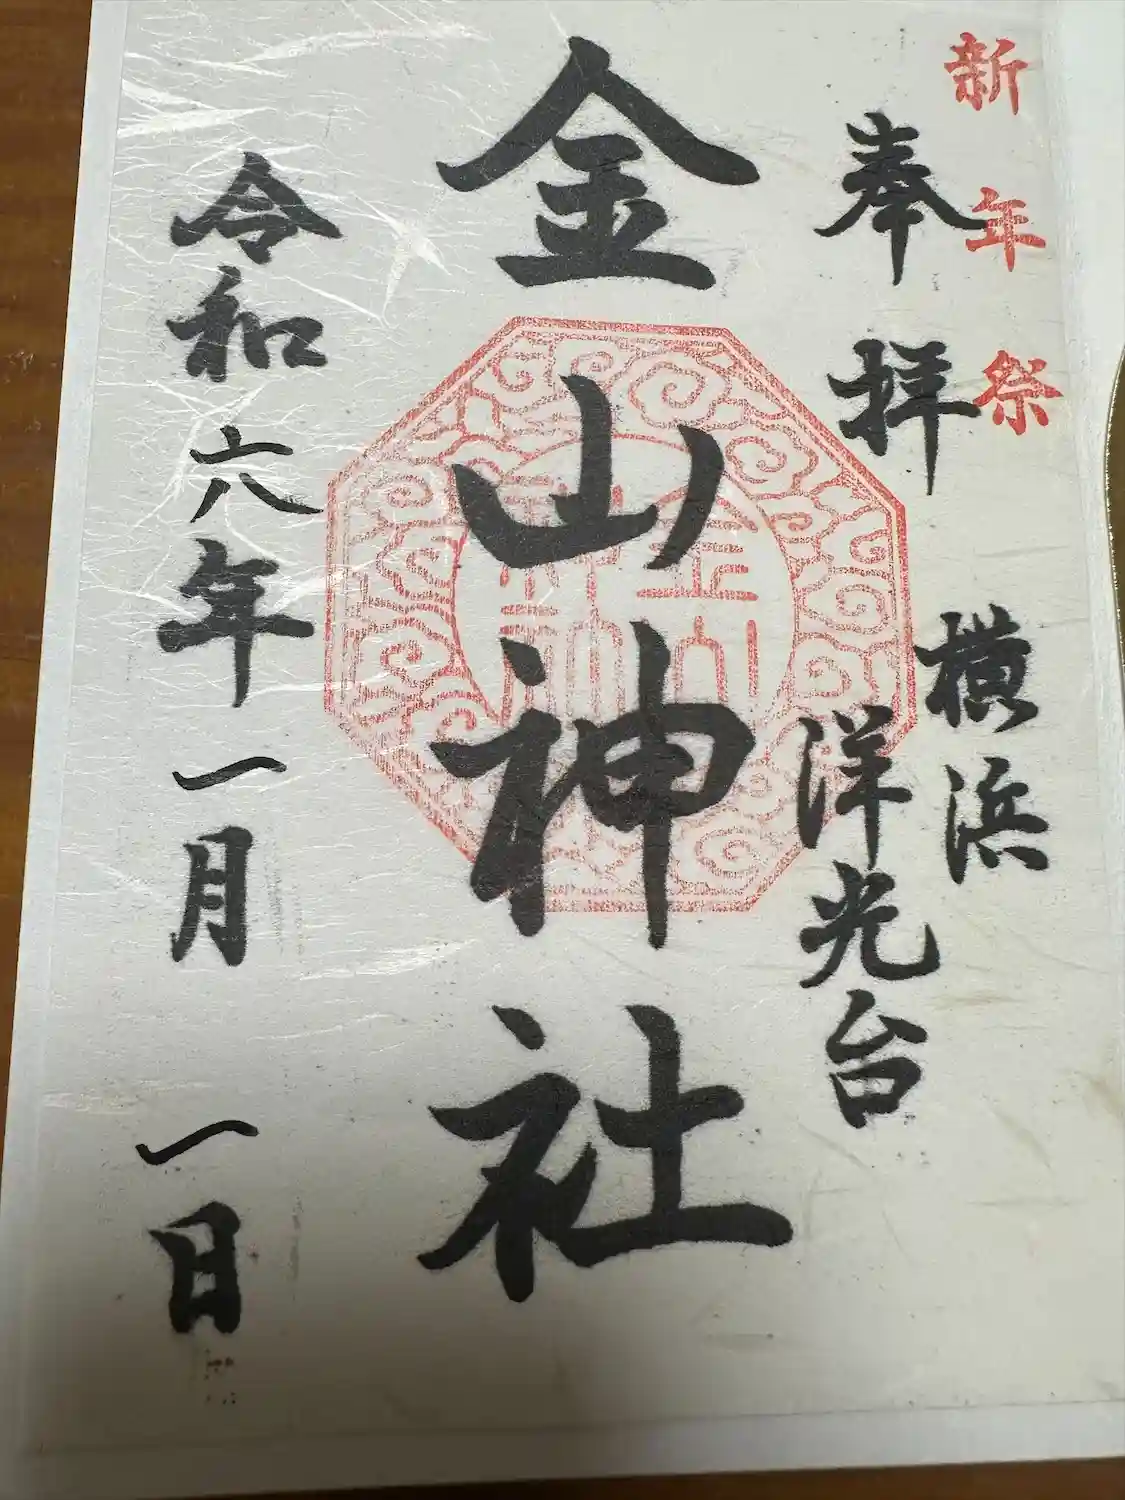 新年祭
奉拝
横浜
洋光台
金山神社
令和六年一月一日